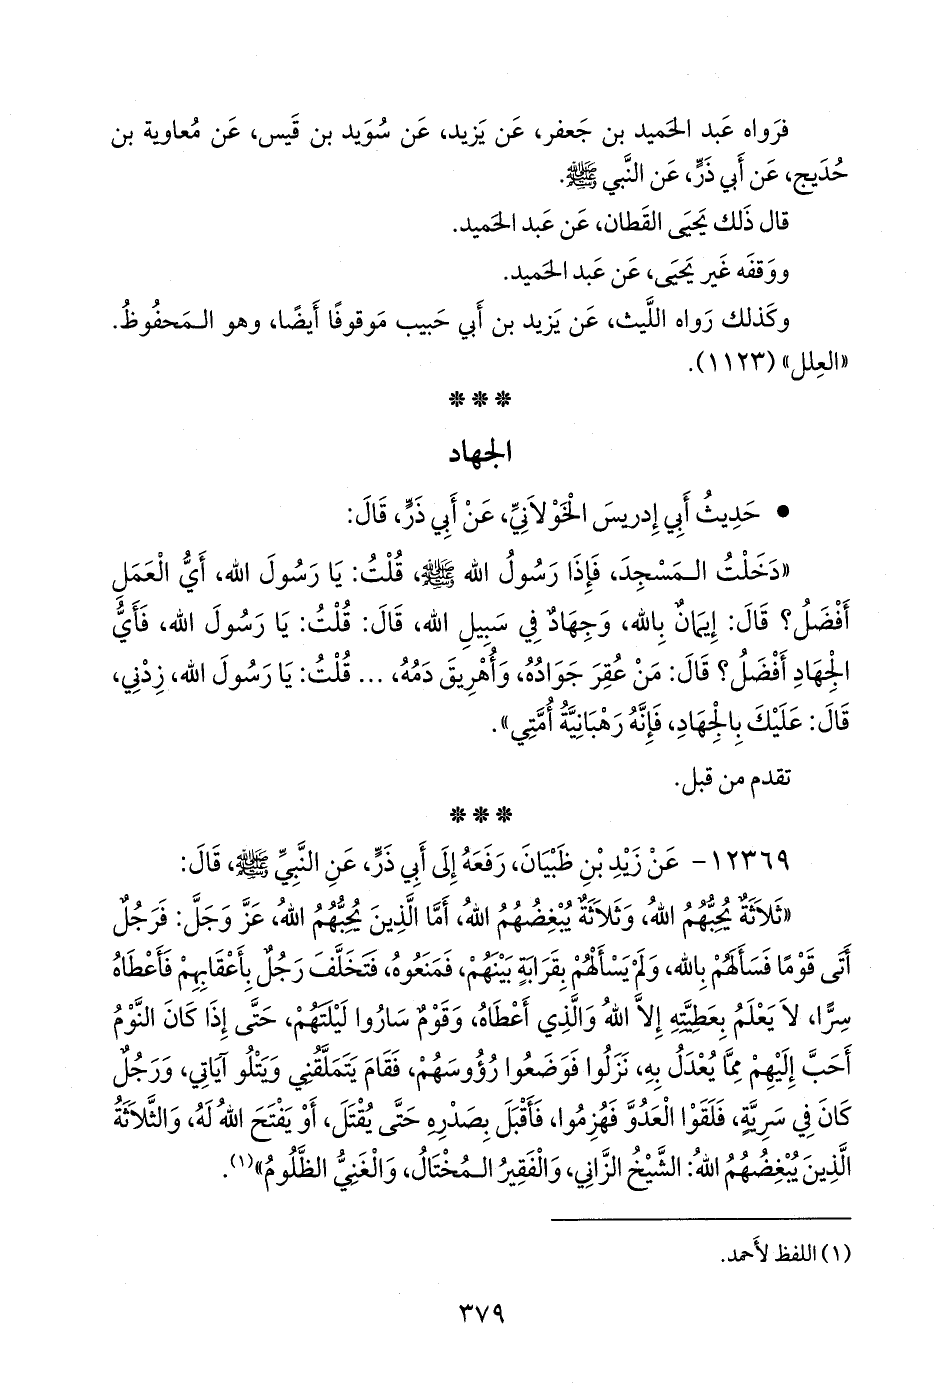 فرَواه عَبد الحَميد بن جَعفر، عَن يَزيد، عَن سُوَيد بن قَيس، عَن مُعاوية بن
حُدَيج، عَن أَبي ذَرٍّ، عَن النَّبي ﷺ.
قال ذَلك يَحيَى القَطان، عَن عَبد الحَميد.
ووَقفَه غَير يَحيَى، عَن عَبد الحَميد.
وكَذلك رَواه اللَّيث، عَن يَزيد بن أَبي حَبيب مَوقوفًا أَيضًا، وهو الـمَحفُوظُ.
«العِلل» (١١٢٣).
* * *
الجهاد
• حَدِيثُ أَبِي إِدريسَ الْخَوْلَانِيِّ، عَنْ أَبِي ذَرٍّ، قَالَ:
«دَخَلْتُ الـمَسْجِدَ، فَإِذَا رَسُولُ الله ﷺ، قُلْتُ: يَا رَسُولَ الله، أَيُّ الْعَمَلِ
أَفْضَلُ؟ قَالَ: إِيمَانٌ بِالله، وَجِهَادٌ فِي سَبِيلِ الله، قَالَ: قُلْتُ: يَا رَسُولَ الله، فَأَيُّ
الْجِهَادِ أَفْضَلُ؟ قَالَ: مَنْ عُقِرَ جَوَادُهُ، وَأُهْرِيقَ دَمُهُ، ... قُلْتُ: يَا رَسُولَ الله، زِدْنِي،
قَالَ: عَلَيْكَ بِالْجِهَادِ، فَإِنَّهُ رَهْبَانِيَّةُ أُمَّتِي».
تقدم من قبل.
* * *
١٢٣٦٩- عَنْ زَيْدِ بْنِ ظَبْيَانَ، رَفَعَهُ إِلَى أَبِي ذَرٍّ، عَنِ النَّبِيِّ ﷺ، قَالَ:
«ثَلاَثَةٌ يُحِبُّهُمُ اللهُ، وَثَلاَثَةٌ يُبْغِضُهُمُ اللهُ، أَمَّا الَّذِينَ يُحِبُّهُمُ اللهُ، عَزَّ وَجَلَّ: فَرَجُلٌ
أَتَى قَوْمًا فَسَأَلَهُمْ بِالله، وَلَمْ يَسْأَلْهُمْ بِقَرَابَةٍ بَيْنَهُمْ، فَمَنَعُوهُ، فَتَخَلَّفَ رَجُلٌ بِأَعْقَابِهِمْ فَأَعْطَاهُ
سِرًّا، لاَ يَعْلَمُ بِعَطِيَّتِهِ إِلاَّ اللهُ وَالَّذِي أَعْطَاهُ، وَقَوْمٌ سَارُوا لَيْلَتَهُمْ، حَتَّى إِذَا كَانَ النَّوْمُ
أَحَبَّ إِلَيْهِمْ مِمَّا يُعْدَلُ بِهِ، نَزَلُوا فَوَضَعُوا رُؤُوسَهُمْ، فَقَامَ يَتَمَلَّقُنِي وَيَتْلُو آيَاتِي، وَرَجُلٌ
كَانَ فِي سَرِيَّةٍ، فَلَقَوْا الْعَدُوَّ فَهُزِمُوا، فَأَقْبَلَ بِصَدْرِهِ حَتَّى يُقْتَلَ، أَوْ يَفْتَحَ اللهُ لَهُ، وَالثَّلاَثَةُ
الَّذِينَ يُبْغِضُهُمُ اللهُ: الشَّيْخُ الزَّانِي، وَالْفَقِيرُ الـمُخْتَالُ، وَالْغَنِيُّ الظَّلُومُ»(١).
(١) اللفظ لأَحمد.
٣٧٩